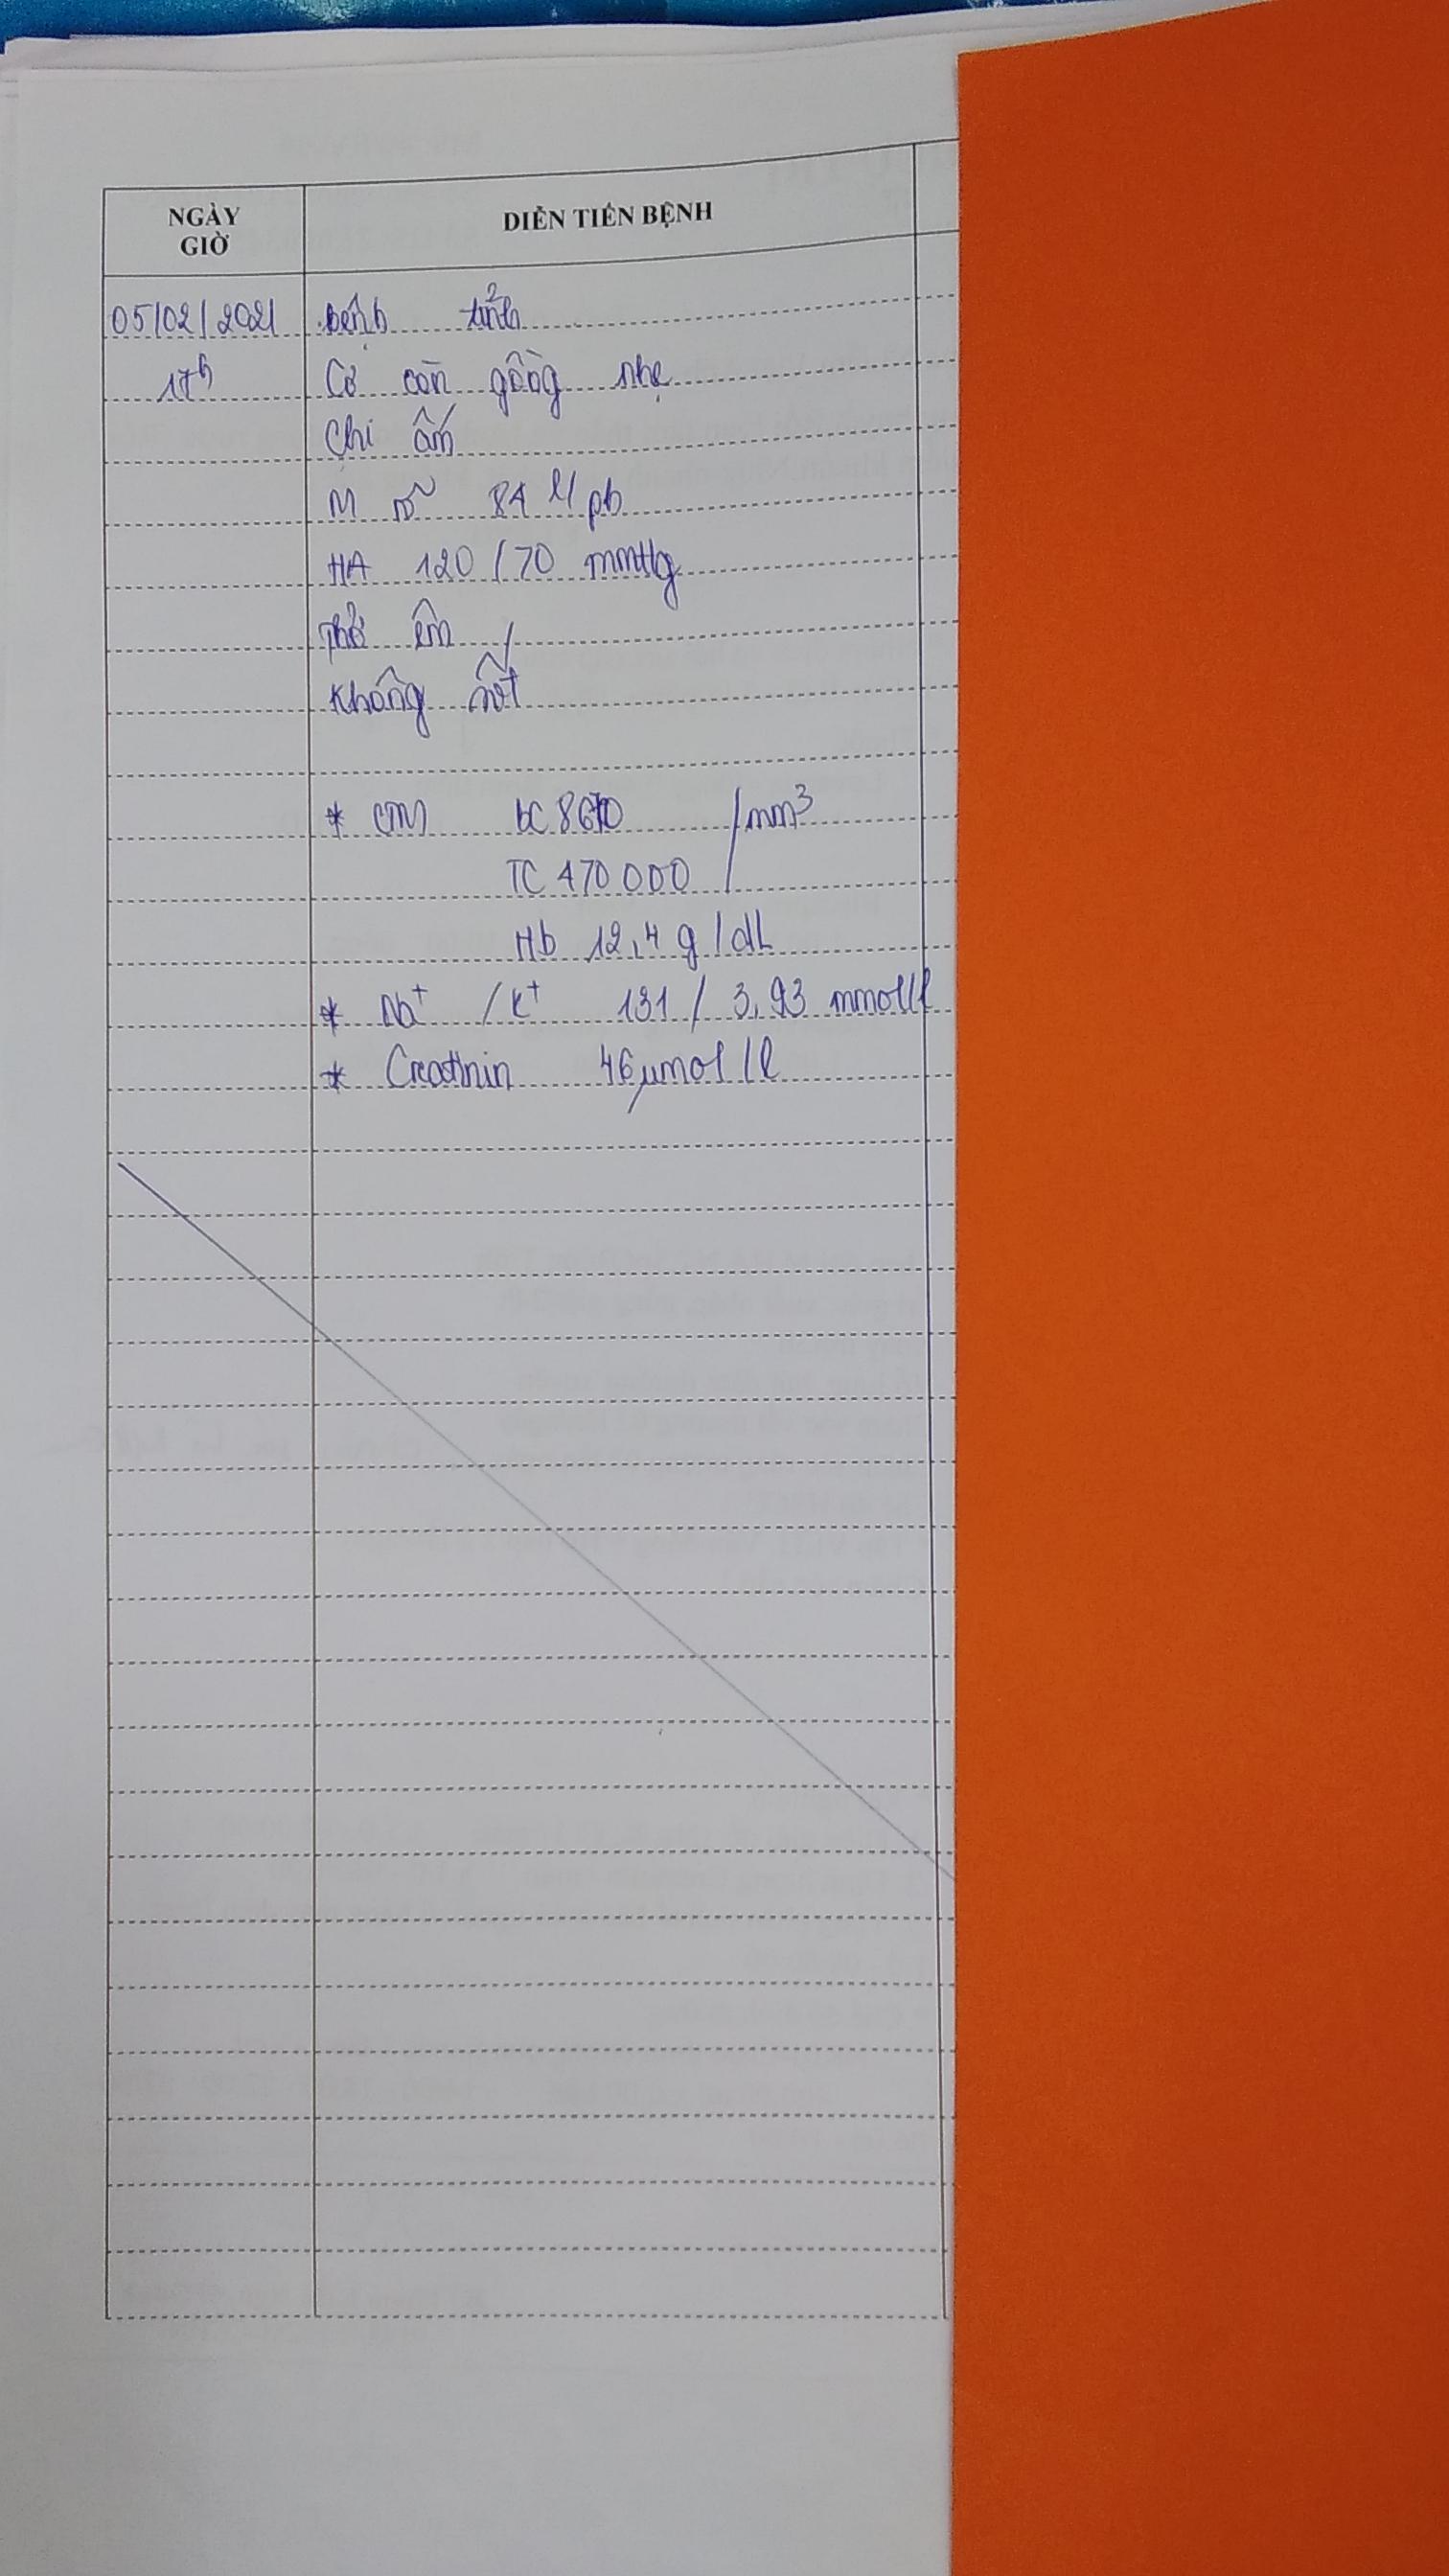 NGÀY
GIỜ
DIỄN TIẾN BỆNH
05/02/2021 bệnh tỉnh
17h Cơ còn gồng nhẹ
Chi ấm
M rõ 84 l/ph
HA 120/70 mmHg
Thở êm
Không sốt
* CTM BC 8670 /mm³
TC 470000
Hb 12,4 g/dL
* Na⁺ /K⁺ 131 / 3,93 mmol/l
* Creatinin 46 µmol/l